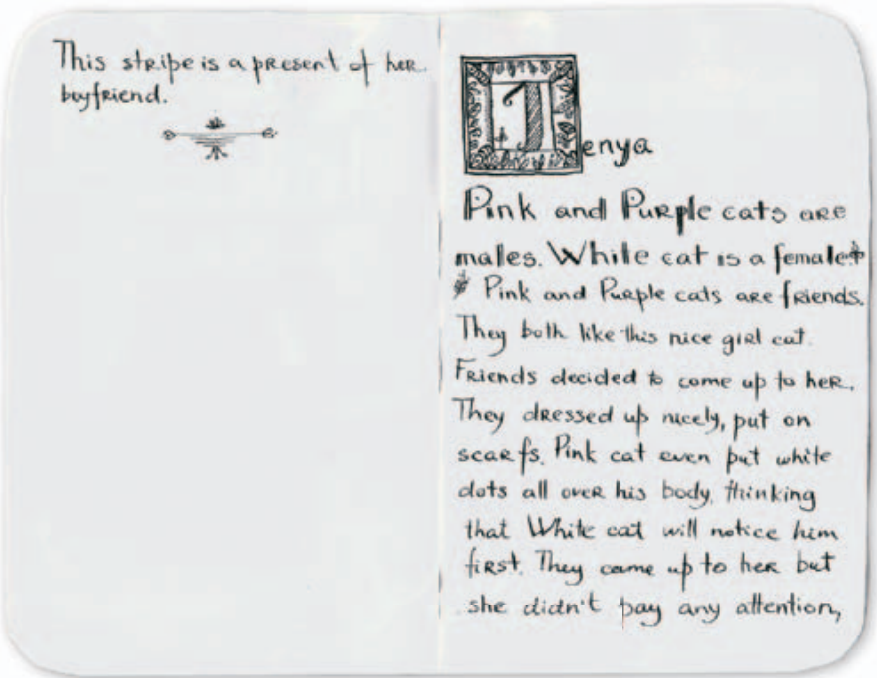 This stripe is a present of her
boyfriend.
Jenya
Pink and Purple cats are
males. White cat is a female.
Pink and Purple cats are friends.
They both like this nice girl cat.
Friends decided to come up to her.
They dressed up nicely, put on
scarfs. Pink cat even put white
dots all over his body, thinking
that White cat will notice him
first. They came up to her but
she didn't pay any attention,